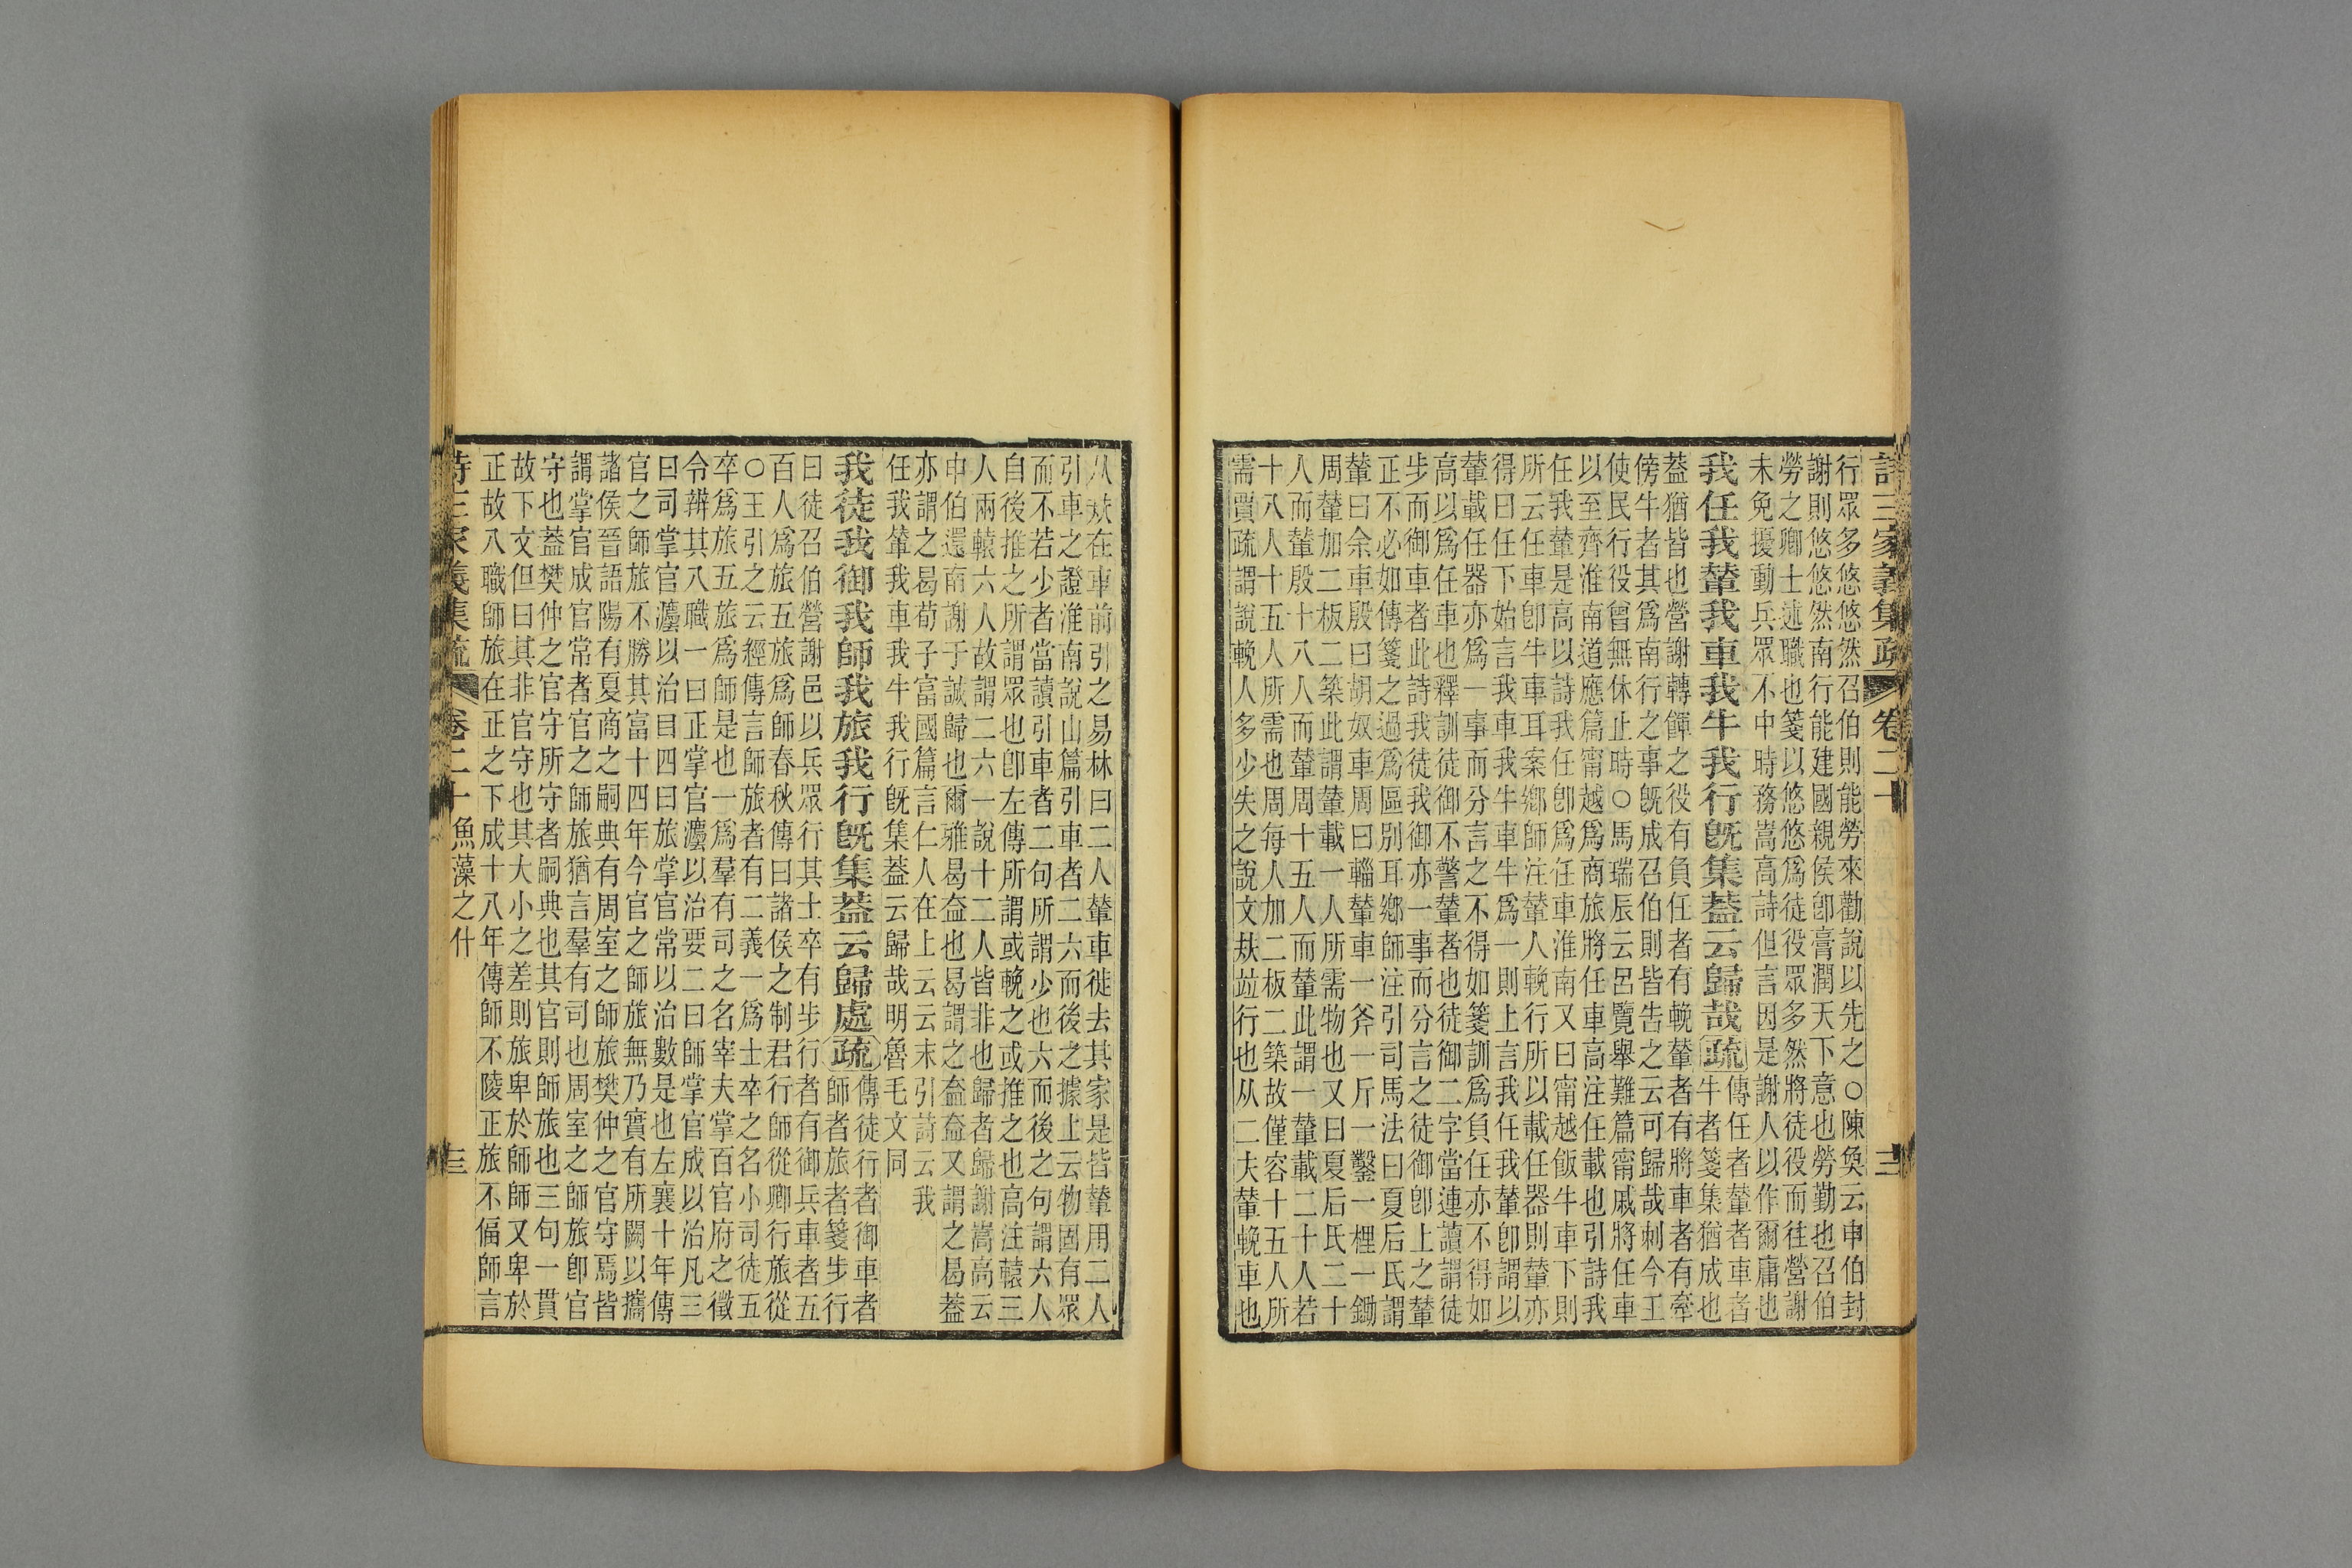 詩三家義集疏 卷二十 三
行眾多悠悠然召伯則能勞來勸說以先之○陳奐云申伯封
謝則悠悠然南行能建國親侯卽膏潤天下意也勞勤也召伯
勞之卿士述職也箋以悠悠爲徒役眾多然將徒役而往營謝
未免擾動兵眾不中時務嵩高詩但言因是謝人以作爾庸也
我任我輦我車我牛我行旣集葢云歸哉疏傳任者輦者車者
牛者箋集猶成也
葢猶皆也營謝轉餫之役有負任者有輓輦者有將車者有牽
傍牛者其爲南行之事旣成召伯則皆告之云可歸哉刺今王
使民行役曾無休止時○馬瑞辰云呂覽舉難篇甯戚將任車
以至齊淮南道應篇甯越爲商旅將任車高注任載也引詩我
任我輦是高以詩我任卽爲任車淮南又曰甯越飯牛車下則
所云任車卽牛車耳案鄉師注輦人輓行所以載任器則輦亦
得曰任下始言我車我牛車牛爲一則上言我任我輦卽謂以
輦載任器亦爲一事而分言之不得如箋訓爲負任亦不得如
高以爲任車也釋訓徒御不警輦者也徒御二字當連讀謂徒
步而御車者此詩我徒我御亦一事而分言之徒御卽上之輦
正不必如傳箋之過爲區別耳鄉師注引司馬法曰夏后氏謂
輦曰余車殷曰胡奴車周曰輜輦車一斧一斤一鑿一梩一鋤
周輦加二板二築此謂輦載一人所需物也又曰夏后氏二十
人而輦殷十八人而輦周十五人而輦此謂一輦載二十人若
十八人十五人所需也周每人加二板二築故僅容十五人所
需賈疏謂說輓人多少失之說文㚘竝行也从二夫輦輓車也
从㚘在車前引之易林曰二人輦車徙去其家是皆輦用二人
引車之證淮南說山篇引車者二六而後之據上云物固有眾
而不若少者當讀引車者二句所謂少也六而後之句謂六人
自後推之所謂眾也卽左傳所謂或輓之或推之也高注轅三
人兩轅六人故謂二六一說十二人皆非也歸者歸謝嵩高云
申伯還南謝于誠歸也爾雅曷盇也曷謂之盇盇又謂之曷葢
亦謂之曷荀子富國篇言仁人在上云云末引詩云我
任我輦我車我牛我行旣集葢云歸哉明魯毛文同
我徒我御我師我旅我行旣集葢云歸處疏傳徒行者御車者
師者旅者箋步行
曰徒召伯營謝邑以兵眾行其士卒有步行者有御兵車者五
百人爲旅五旅爲師春秋傳曰諸侯之制君行師從卿行旅從
○王引之云經傳言師旅者有二義一爲士卒之名小司徒五
卒爲旅五旅爲師是也一爲羣有司之名宰夫掌百官府之徵
令辨其八職一曰正掌官灋以治要二曰師掌官成以治凡三
曰司掌官灋以治目四曰旅掌官常以治數是也左襄十年傳
官之師旅不勝其富十四年今官之師旅無乃實有所闕以攜
諸侯晉語陽有夏商之嗣典有周室之師旅樊仲之官守焉皆
謂掌官成官常者官之師旅猶言羣有司也周室之師旅卽官
守也葢樊仲之官守所守者嗣典也其官則師旅也三句一貫
故下文但曰其非官守也其大小之差則旅卑於師師又卑於
正故八職師旅在正之下成十八年傳師不陵正旅不偪師言
詩三家義集疏 卷二十魚藻之什 三